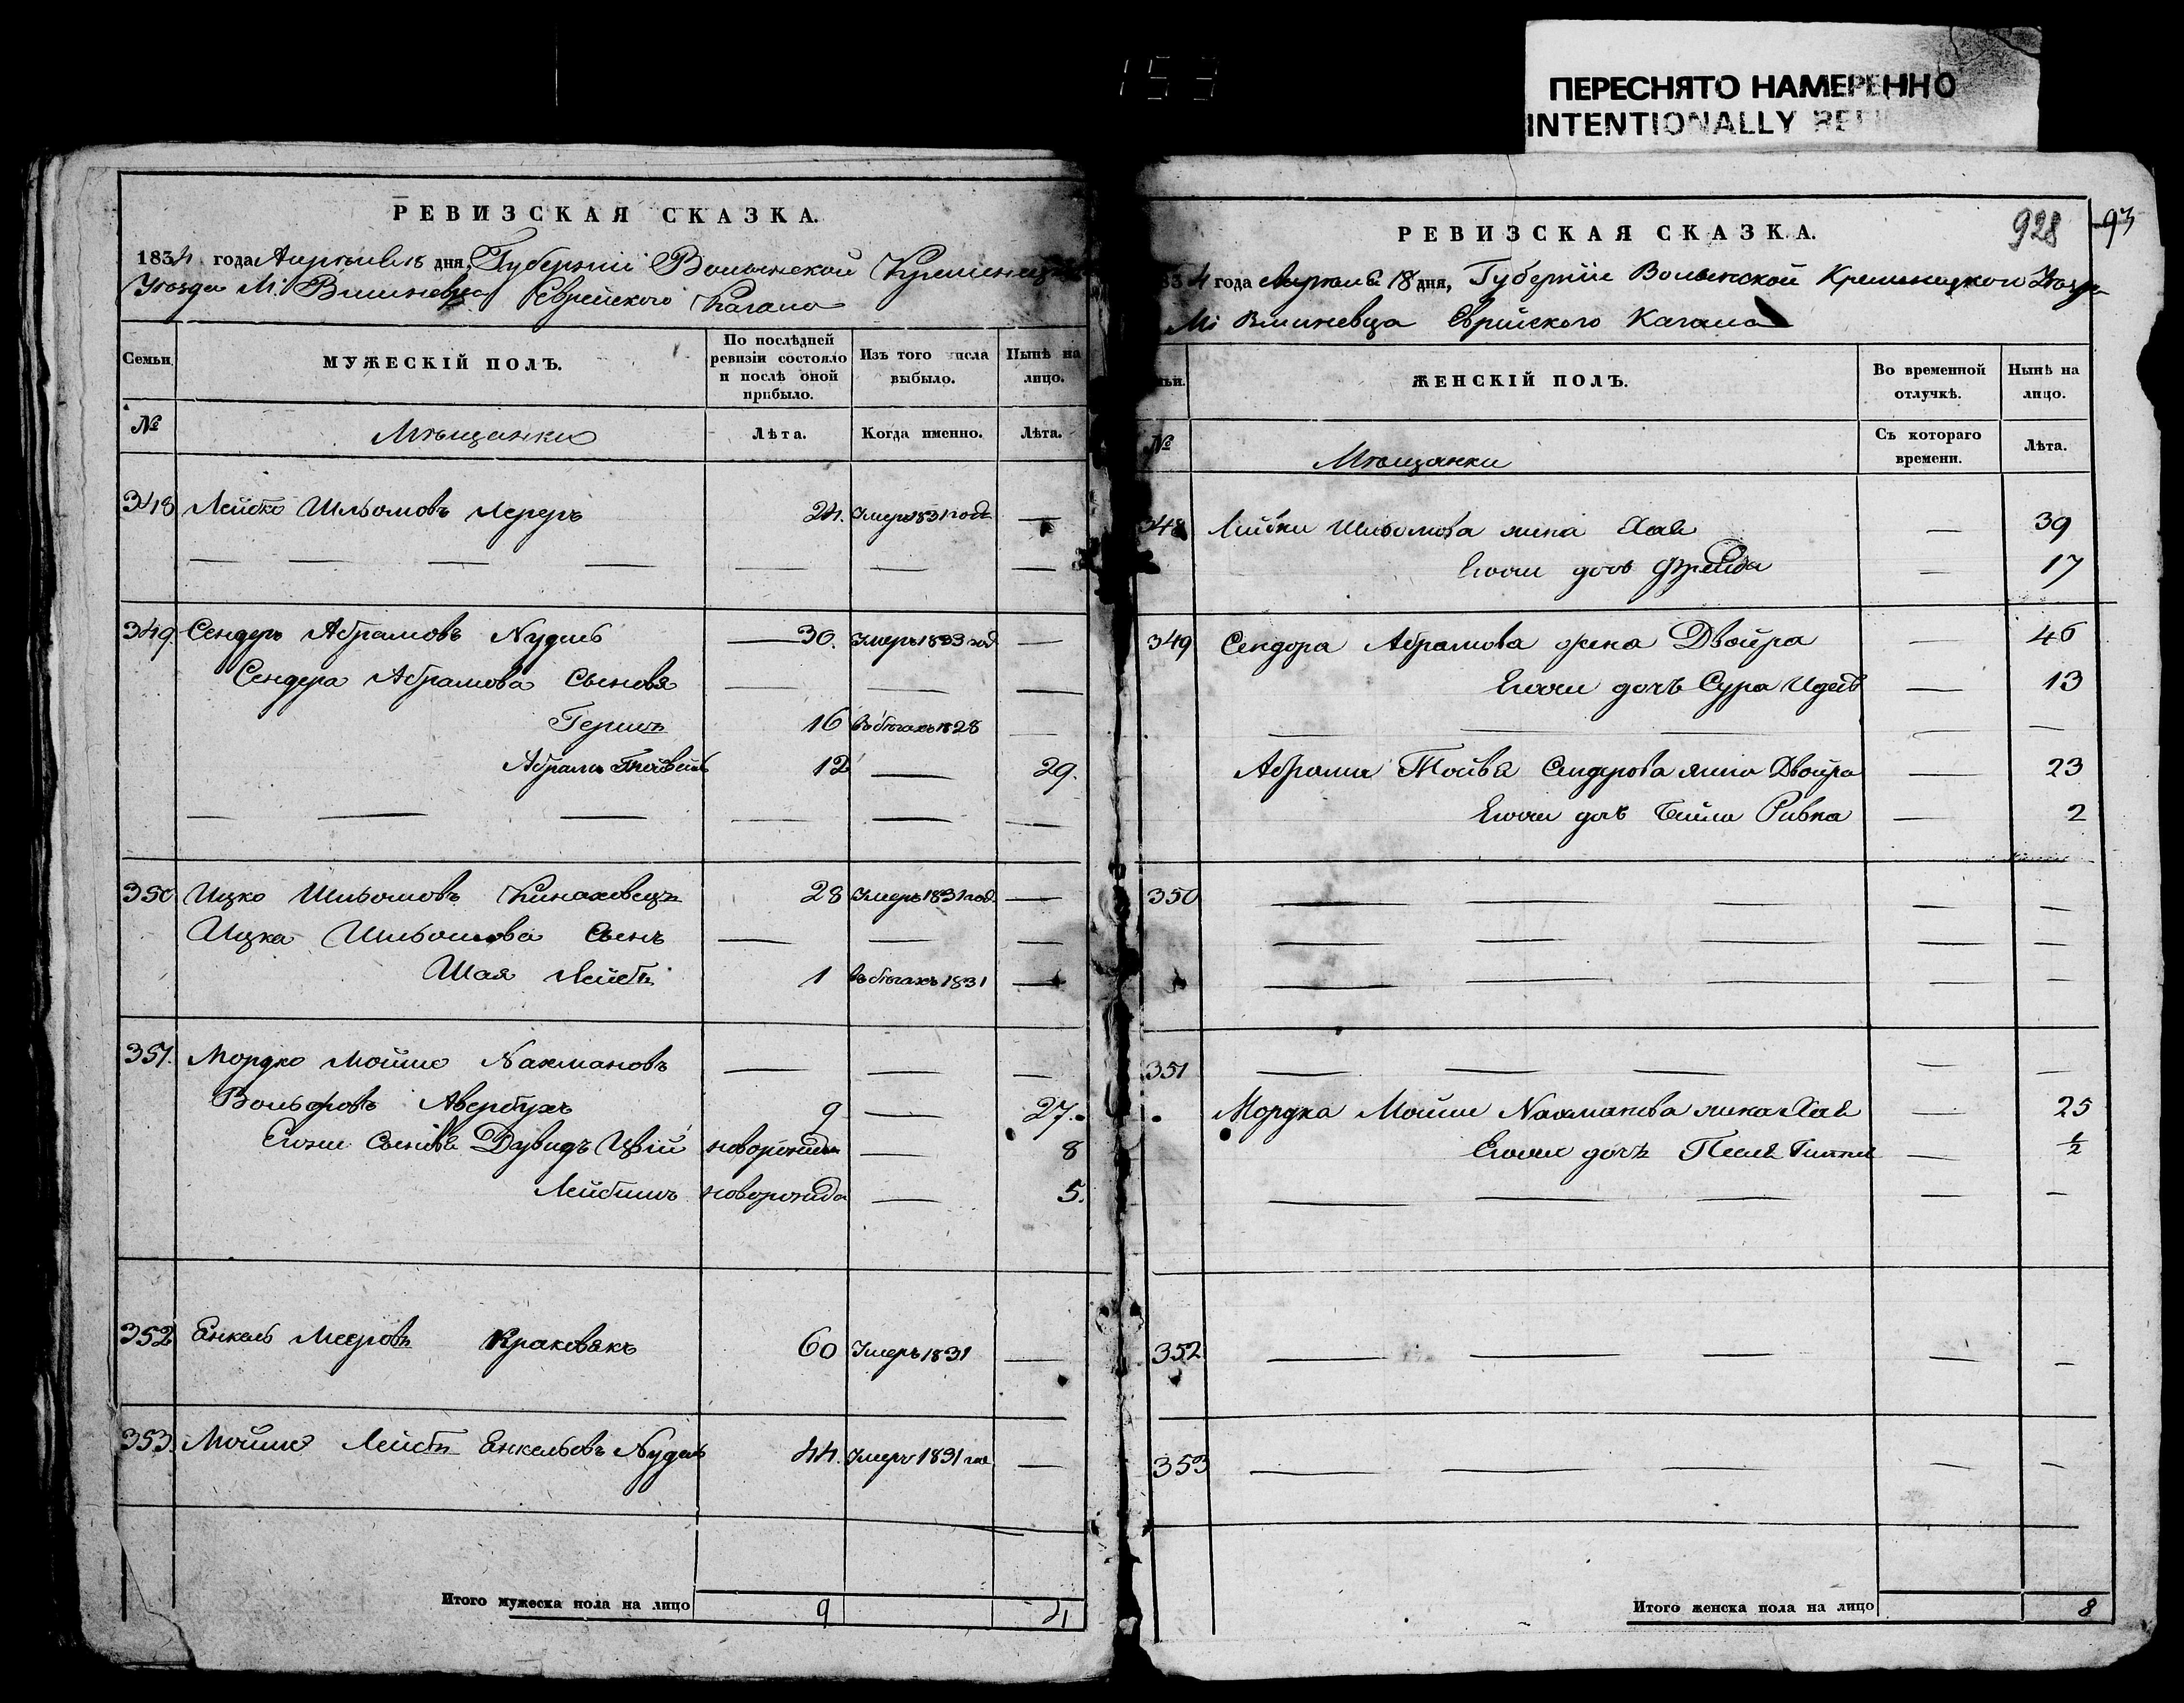 153
ПЕРЕСНЯТО НАМЕРЕННО
INTENTIONALLY
РЕВИЗСКАЯ СКАЗКА.
1834 года Апреля 18 дня, Губернии Волынской Кременецкаго
Уезда М. Вишневца Еврейского Кагала
Семьи
МУЖЕСКІЙ ПОЛЪ.
По послѣдней ревизіи состояло и послѣ оной прибыло.
Изъ того числа выбыло.
Нынѣ на лицо.
№
Мѣщанки
Лѣта.
Когда именно.
Лѣта.
348 Лейбко Шльомовъ Лереръ 24. Умеръ 1831 года —
349. Сендеръ Абрамовъ Nудель 30. Умеръ 1833 год —
Сендера Абрамова Сыновя — — —
Гершъ 16 въ бѣгахъ 1828 —
Абрамъ Тойвель 12 — 29.
350 Ицко Шльомовъ Кинаховецъ 28 Умеръ 1831 год. —
Ицка Шльомова Сынъ — — —
Шая Лейбъ 1 въ бѣгахъ 1831 —
351. Мордко Мойше Nахмановъ — — —
Вольфовъ Авербухъ 9 — 27.
Егоже Сыновя Дувидъ Цвій новорожда — 8
Лейбишъ новорожда — 5.
352 Енкель Мееровъ Краковякъ 60 Умеръ 1831 —
353. Мойше Лейбъ Енкельовъ Nудель 44. Умеръ 1831 год —
Итого мужеска пола на лицо 9 4
928
93
РЕВИЗСКАЯ СКАЗКА.
34 года Апреля 18 дня, Губерніи Волынской Кременецкой Уезда
М. Вишневца Еврейского Кагала
ЖЕНСКІЙ ПОЛЪ.
Во временной отлучкѣ.
Нынѣ на лицо.
№
Мѣщанки
Съ котораго времени.
Лѣта.
348 Лейбки Шльомова жена Хая — 39
Егоже дочь Фрейда — 17
349 Сендора Абрамова жена Двойра — 46
Егоже дочъ Сура Идесь — 13
Абрама Тойвя Сендерова жена Двойра — 23
Егоже дочь Бейла Ривка — 2
350 — — — — —
351 — — — — —
Мордка Мойши Nахманова жена Хая — 25
Егоже дочъ Песя Гитля — ½
352 — — — — —
353 — — — — —
Итого женска пола на лицо 8